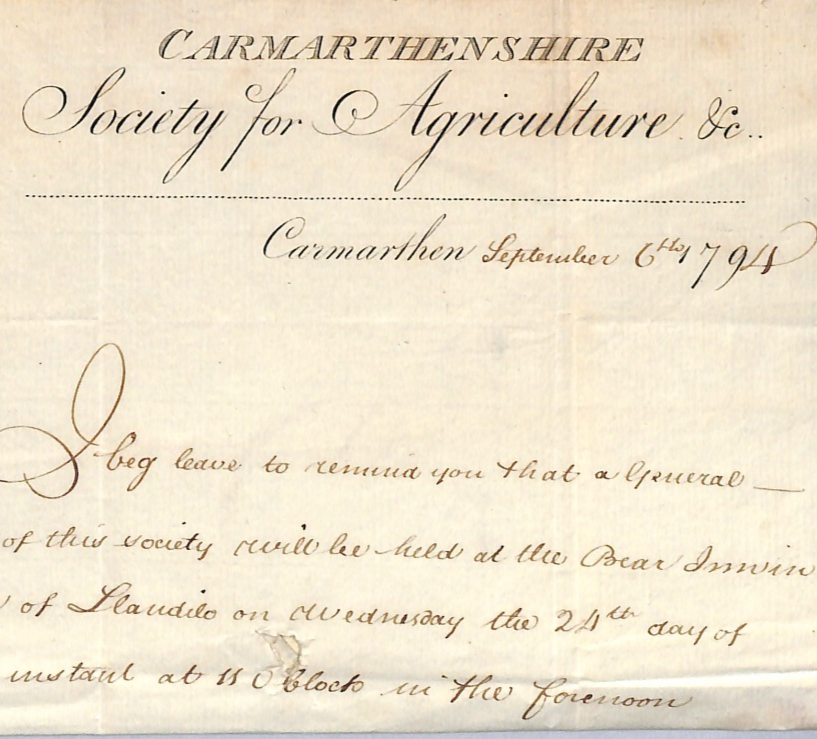 CARMARTHENSHIRE
Society for Agriculture &c..
Carmarthen September 6th 1794
I beg leave to remind you that a General —
of this society will be held at the Bear Inn in
of Llandilo on Wednesday the 24th day of
instant at 11 O Clock in the forenoon